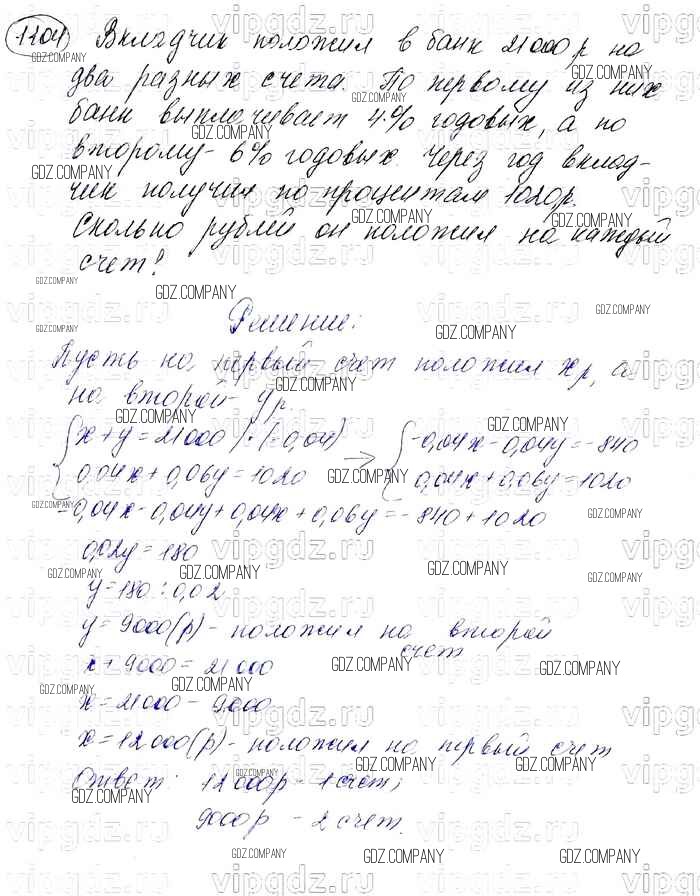 1104 Вкладчик положил в банк 21000р на
два разных счета. По первому из них
банк выплачивает 4% годовых, а по
второму - 6% годовых. Через год вклад-
чик получил по процентам 1020р.
Сколько рублей он положил на каждый
счет?
Решение:
Пусть на первый счет положил хр, а
на второй yр
{ x + y = 21000 | · (-0,04) → { -0,04x - 0,04y = -840
0,04x + 0,06y = 1020 0,04x + 0,06y = 1020
-0,04x - 0,04y + 0,04x + 0,06y = -840 + 1020
0,02y = 180
y = 180 : 0,02
y = 9000(р) - положил на второй
счет
x + 9000 = 21000
x = 21000 - 9000
x = 12000(р) - положил на первый счет
Ответ: 12000р - 1 счет;
9000р - 2 счет.
GDZ.COMPANY
vipgdz.ru